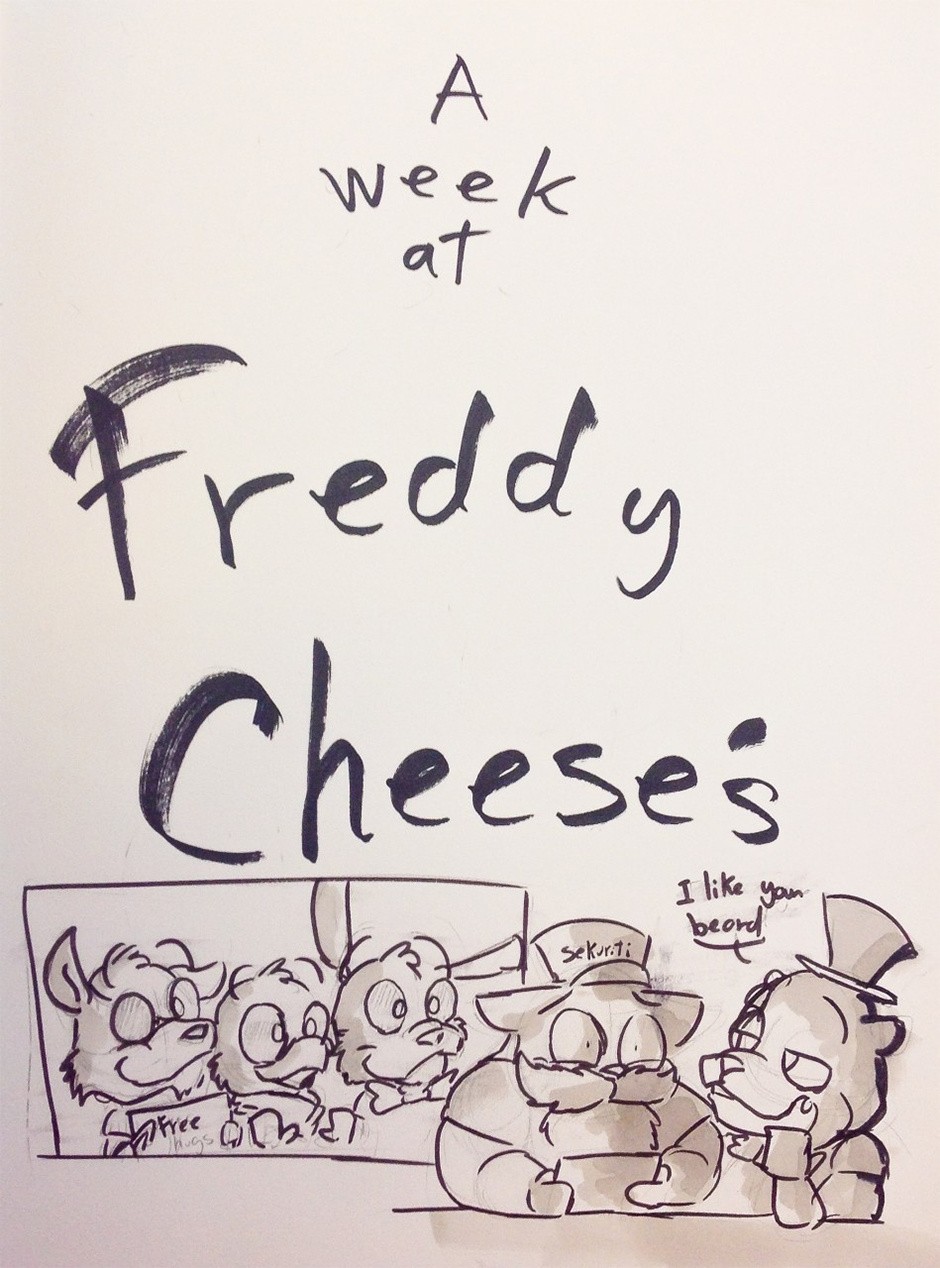 A
week
at
Freddy
Cheese's
I like your
beard
sekuriti
Free
hugs